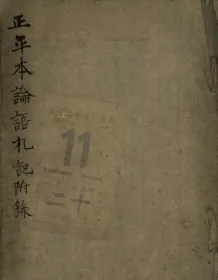 正平本論語札記附錄
11
二十